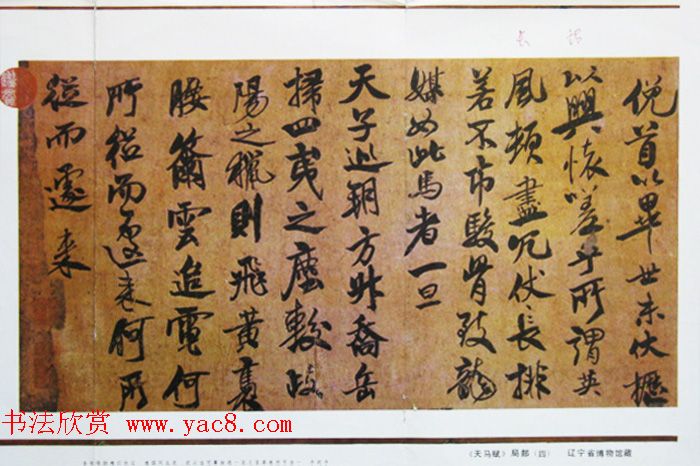 俛首以畢世未伏櫪
以興懷嗟乎所謂英
風頓盡冗仗長排
若不市駿骨致龍
媒如此馬者一旦
天子巡朔方升喬岳
掃四夷之塵較岐
陽之獵則飛黃裊
腰籋雲追電何
所從而遽来何所
從而遽来
书法欣赏 www.yac8.com
《天马赋》局部(四) 辽宁省博物馆藏